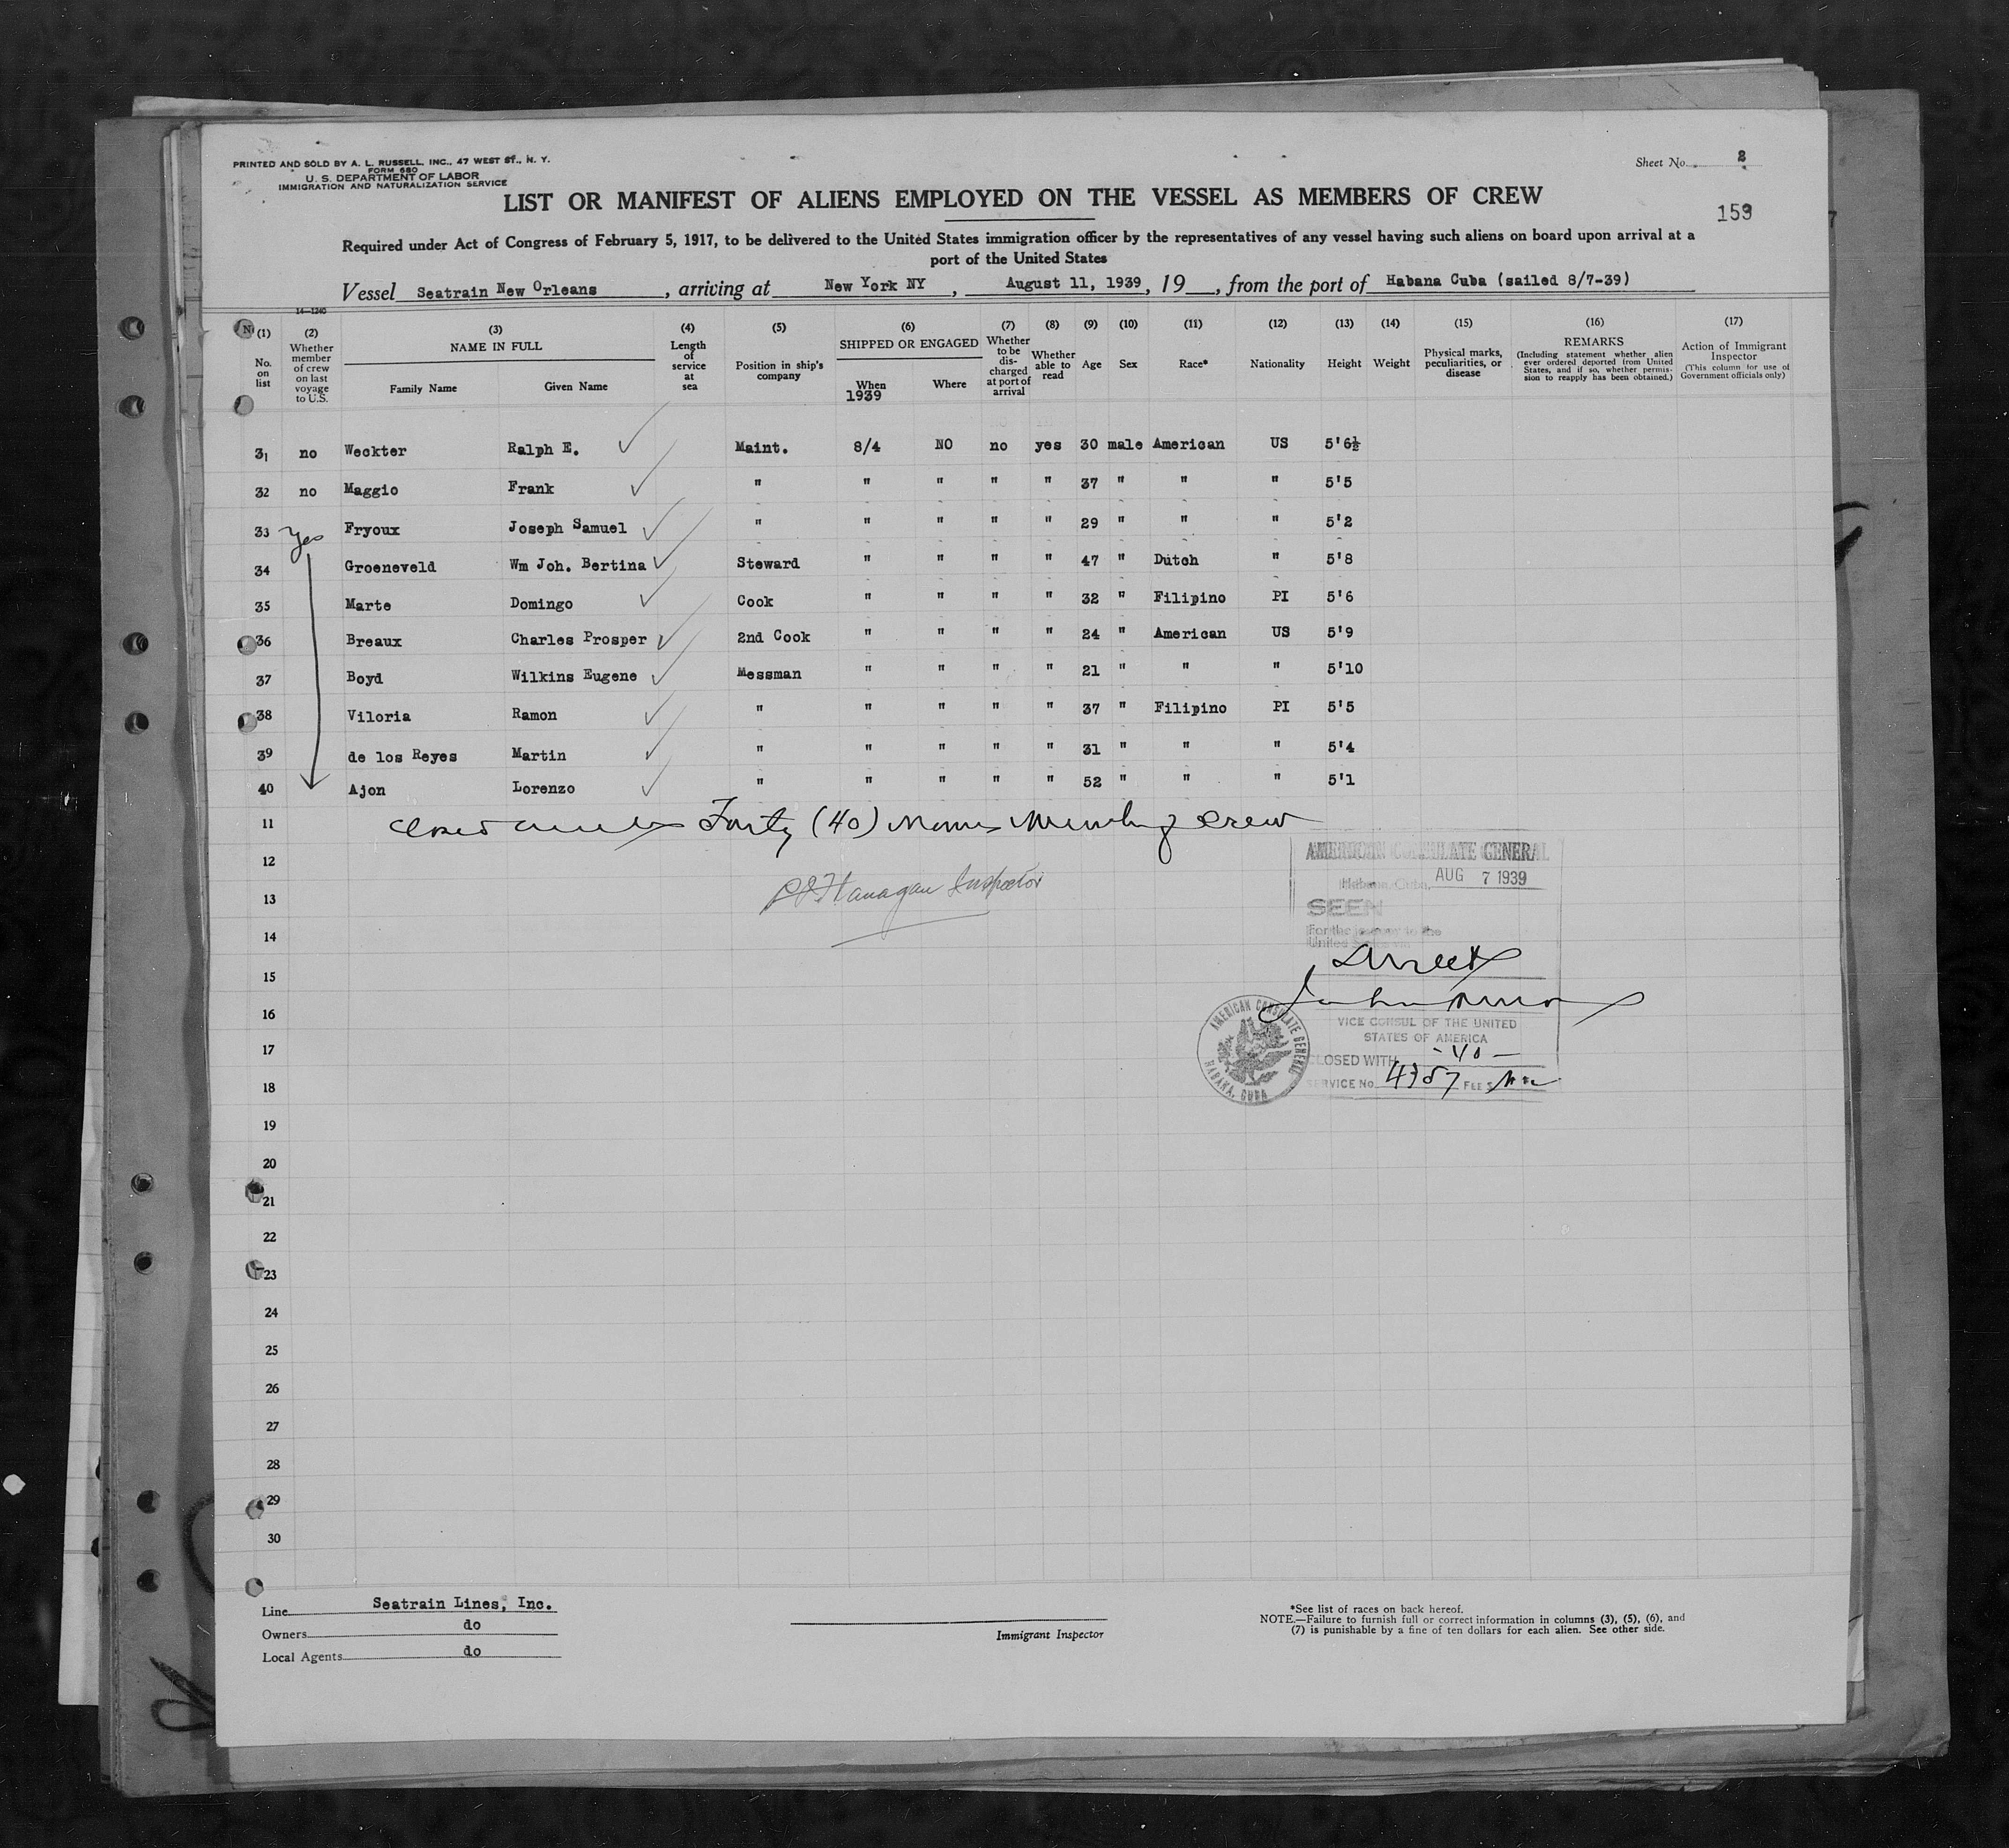 PRINTED AND SOLD BY A. L. RUSSELL, INC., 47 WEST ST., N. Y.
FORM 680
U. S. DEPARTMENT OF LABOR
IMMIGRATION AND NATURALIZATION SERVICE
Sheet No. 2
LIST OR MANIFEST OF ALIENS EMPLOYED ON THE VESSEL AS MEMBERS OF CREW
159
Required under Act of Congress of February 5, 1917, to be delivered to the United States immigration officer by the representatives of any vessel having such aliens on board upon arrival at a
port of the United States
Vessel Seatrain New Orleans, arriving at New York NY, August 11, 1939, 19, from the port of Habana Cuba (sailed 8/7-39)
14—1240
(1) (2) (3) (4) (5) (6) (7) (8) (9) (10) (11) (12) (13) (14) (15) (16) (17)
No. on list
Whether member of crew on last voyage to U.S.
NAME IN FULL
Family Name Given Name
Length of service at sea
Position in ship's company
SHIPPED OR ENGAGED
When 1939 Where
Whether to be discharged at port of arrival
Whether able to read
Age Sex Race* Nationality Height Weight
Physical marks, peculiarities, or disease
REMARKS
(Including statement whether alien ever ordered deported from United States, and if so, whether permission to reapply has been obtained.)
Action of Immigrant Inspector
(This column for use of Government officials only)
31 no Weckter Ralph E. Maint. 8/4 NO no yes 30 male American US 5'6½
32 no Maggio Frank " " " " " 37 " " " 5'5
33 Yes Fryoux Joseph Samuel " " " " " 29 " " " 5'2
34 Groeneveld Wm Joh. Bertina Steward " " " " 47 " Dutch " 5'8
35 Marte Domingo Cook " " " " 32 " Filipino PI 5'6
36 Breaux Charles Prosper 2nd Cook " " " " 24 " American US 5'9
37 Boyd Wilkins Eugene Messman " " " " 21 " " " 5'10
38 Viloria Ramon " " " " " 37 " Filipino PI 5'5
39 de los Reyes Martin " " " " " 31 " " " 5'4
40 Ajon Lorenzo " " " " " 52 " " " 5'1
11 Forty (40) Crew
12
13 Flanagan Inspector
14
15
16
17
18
19
20
21
22
23
24
25
26
27
28
29
30
AMERICAN CONSULATE GENERAL
Habana, Cuba, AUG 7 1939
SEEN
For the journey to the
United States via
Direct
VICE CONSUL OF THE UNITED
STATES OF AMERICA
CLOSED WITH -40-
SERVICE No. 4387 FEE $
AMERICAN CONSULATE GENERAL
HABANA, CUBA
Line Seatrain Lines, Inc.
Owners do
Local Agents do
Immigrant Inspector
*See list of races on back hereof.
NOTE.—Failure to furnish full or correct information in columns (3), (5), (6), and
(7) is punishable by a fine of ten dollars for each alien. See other side.